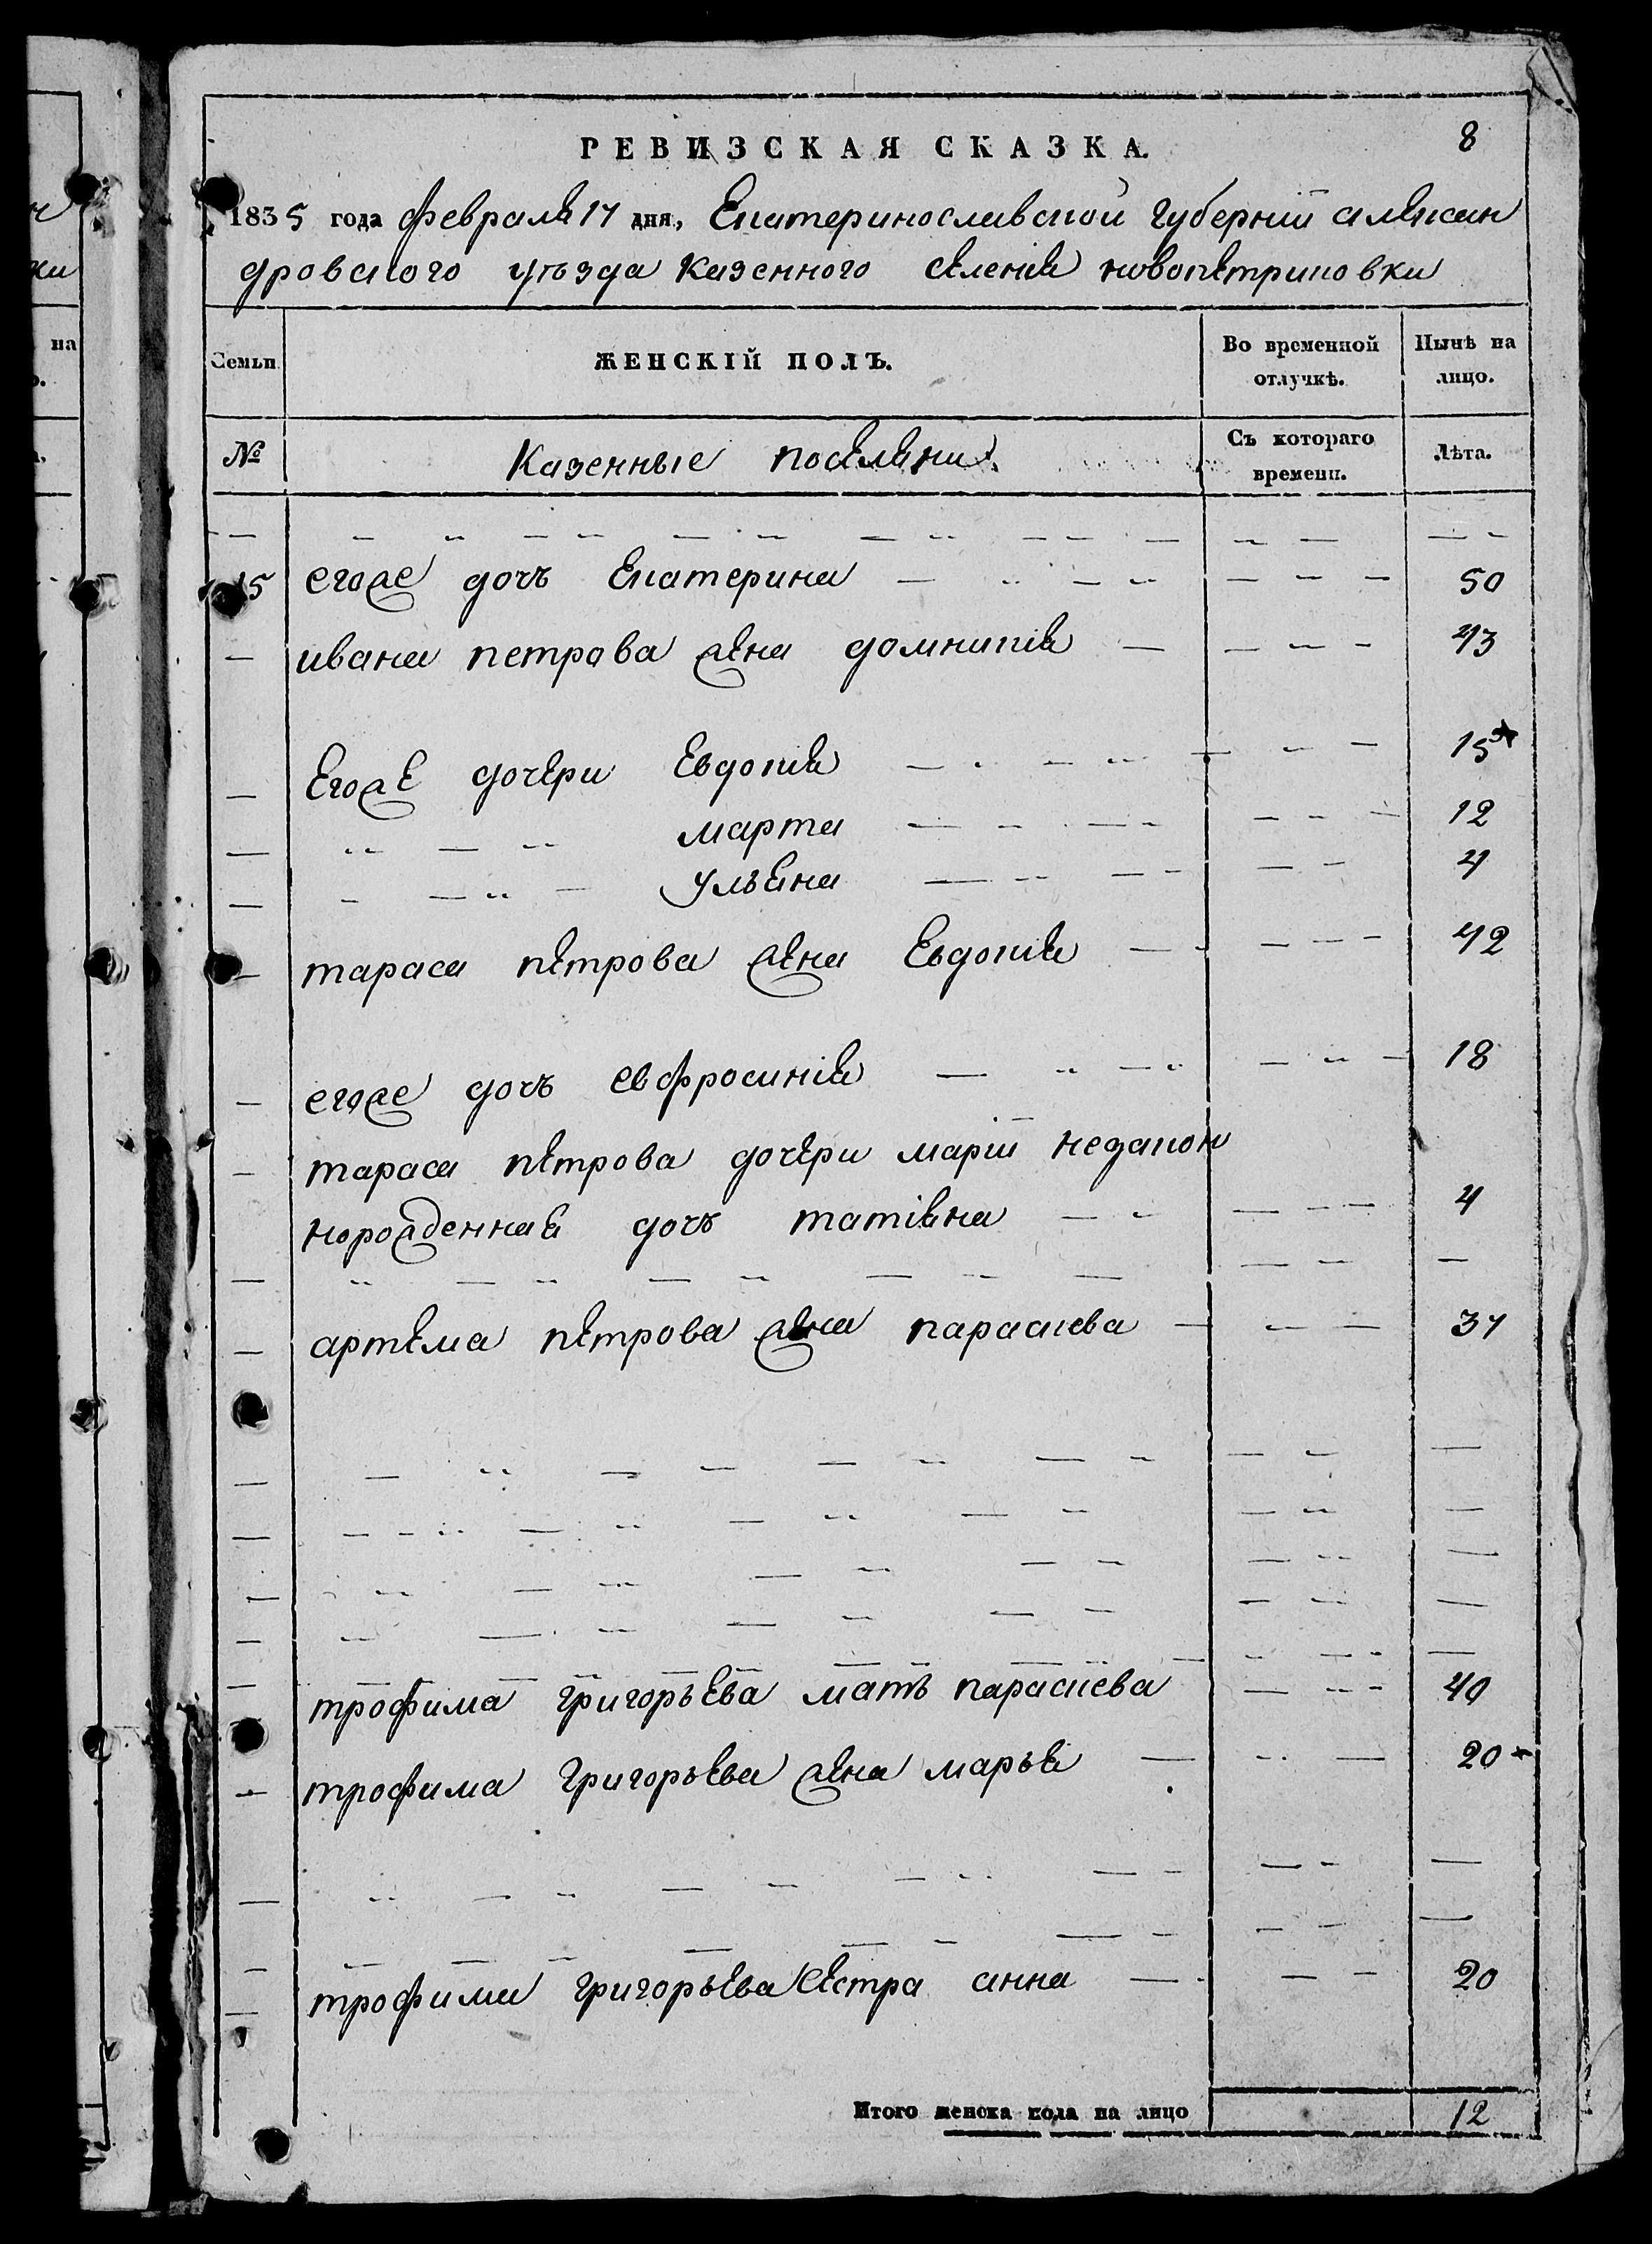 РЕВИЗСКАЯ СКАЗКА.
8
1835 года февраля 17 дня, Екатеринославской губерніи алексан
дровского уѣзда казенного селенія новопетриковки
Семьи
ЖЕНСКІЙ ПОЛЪ.
Во временной отлучкѣ.
Нынѣ на лицо.
№
Казенные поселяни.
Съ котораго времени.
Лѣта.
15 егоже дочъ Екатерина 50
ивана петрова жена домникія 43
Егоже дочери Евдокія 15
марта 12
ульяна 4
тараса петрова жена Евдокія 42
егоже дочъ евфросинія 18
тараса петрова дочери маріи незакон
норожденная дочъ татіяна 4
артема петрова жена параскева 37
трофима григорьева мать параскева 40
трофима григорьева жена марья 20
трофима григорьева сестра анна 20
Итого женска пола на лицо 12